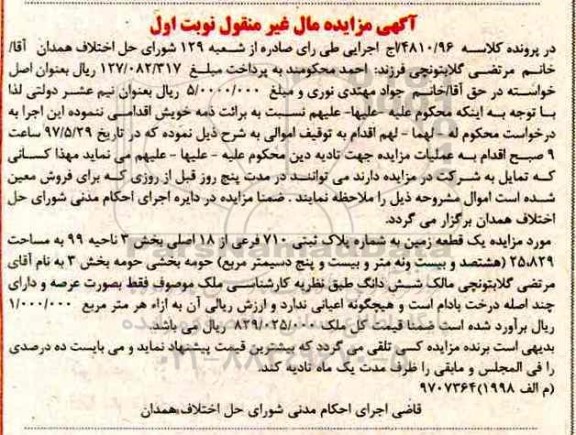 آگهی مزایده مال غیر منقول نوبت اول
در پرونده کلاسه ۴۸۱۰/۹۶/اج اجرایی طی رای صادره از شعبه ۱۲۹ شورای حل اختلاف همدان آقا/
خانم مرتضی گلابتونچی فرزند: احمد محکومند به پرداخت مبلغ ۱۲۷/۰۸۲/۳۱۷ ریال بعنوان اصل
خواسته در حق آقا/خانم جواد مهتدی نوری و مبلغ ۵/۰۰۰۰/۰۰۰ ریال بعنوان نیم عشر دولتی لذا
با توجه به اینکه محکوم علیه -علیها- علیهم نسبت به برائت ذمه خویش اقدامی ننموده این اجرا به
درخواست محکوم له - لهما - لهم اقدام به توقیف اموالی به شرح ذیل نموده که در تاریخ ۹۷/۵/۲۹ ساعت
۹ صبح اقدام به عملیات مزایده جهت تادیه دین محکوم علیه - علیها - علیهم می نماید مهذا کسانی
که تمایل به شرکت در مزایده دارند می توانند در مدت پنج روز قبل از روزی که برای فروش معین
شده است اموال مشروحه ذیل را ملاحظه نمایند . ضمنا مزایده در دایره اجرای احکام مدنی شورای حل
اختلاف همدان برگزار می گردد.
مورد مزایده یک قطعه زمین به شماره پلاک ثبتی ۷۱۰ فرعی از ۱۸ اصلی بخش ۳ ناحیه ۹۹ به مساحت
۲۵،۸۲۹ (هشتصد و بیست ونه متر و بیست و پنج دسیمتر مربع) حومه بخشی حومه بخش ۳ به نام آقای
مرتضی گلابتونچی مالک شش دانگ طبق نظریه کارشناسی ملک موصوف فقط بصورت عرصه و دارای
چند اصله درخت بادام است و هیچگونه اعیانی ندارد و ارزش ریالی آن به ازاء هر متر مربع ۱/۰۰۰/۰۰۰
ریال برآورد شده است ضمنا قیمت کل ملک ۸۲۹/۰۲۵/۰۰۰ ریال می باشد.
بدیهی است برنده مزایده کسی تلقی می گردد که بیشترین قیمت پیشنهاد نماید و می بایست ده درصدی
را فی المجلس و مابقی را ظرف مدت یک ماه تادیه کند.
(م الف ۱۹۹۸)۹۷۰۷۳۶۴
قاضی اجرای احکام مدنی شورای حل اختلاف همدان